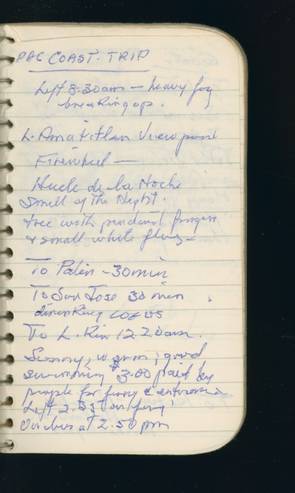 PAC COAST. TRIP
Left 8:30am - heavy fog
breaking up.
L. Amatitlan Viewpoint
Firewheel -
Huele de la Noche
Smell of the Night.
tree with pendant fingers
& small white flws -
To Palin - 30 min
To San Jose 30 min
drinking cocos
To L. Rin 12.20am.
Sunny, warm, good
swimming $3.00 paid by
people for ferry & entrance
Left 2.
On bus at 2.50 pm